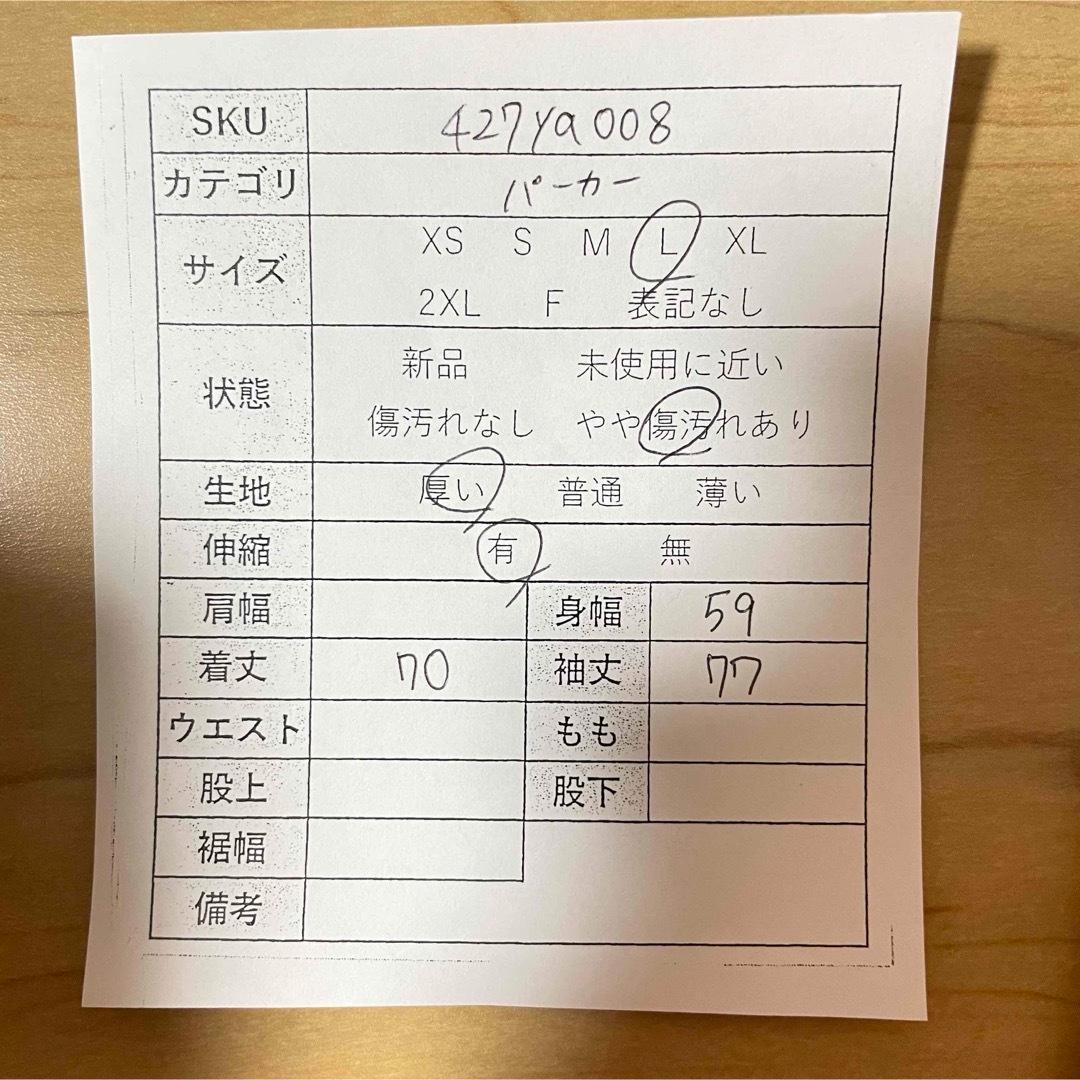 SKU 427ya008
カテゴリ パーカー
サイズ XS S M L XL
2XL F 表記なし
状態 新品 未使用に近い
傷汚れなし やや傷汚れあり
生地 厚い 普通 薄い
伸縮 有 無
肩幅 身幅 59
着丈 70 袖丈 77
ウエスト もも
股上 股下
裾幅
備考